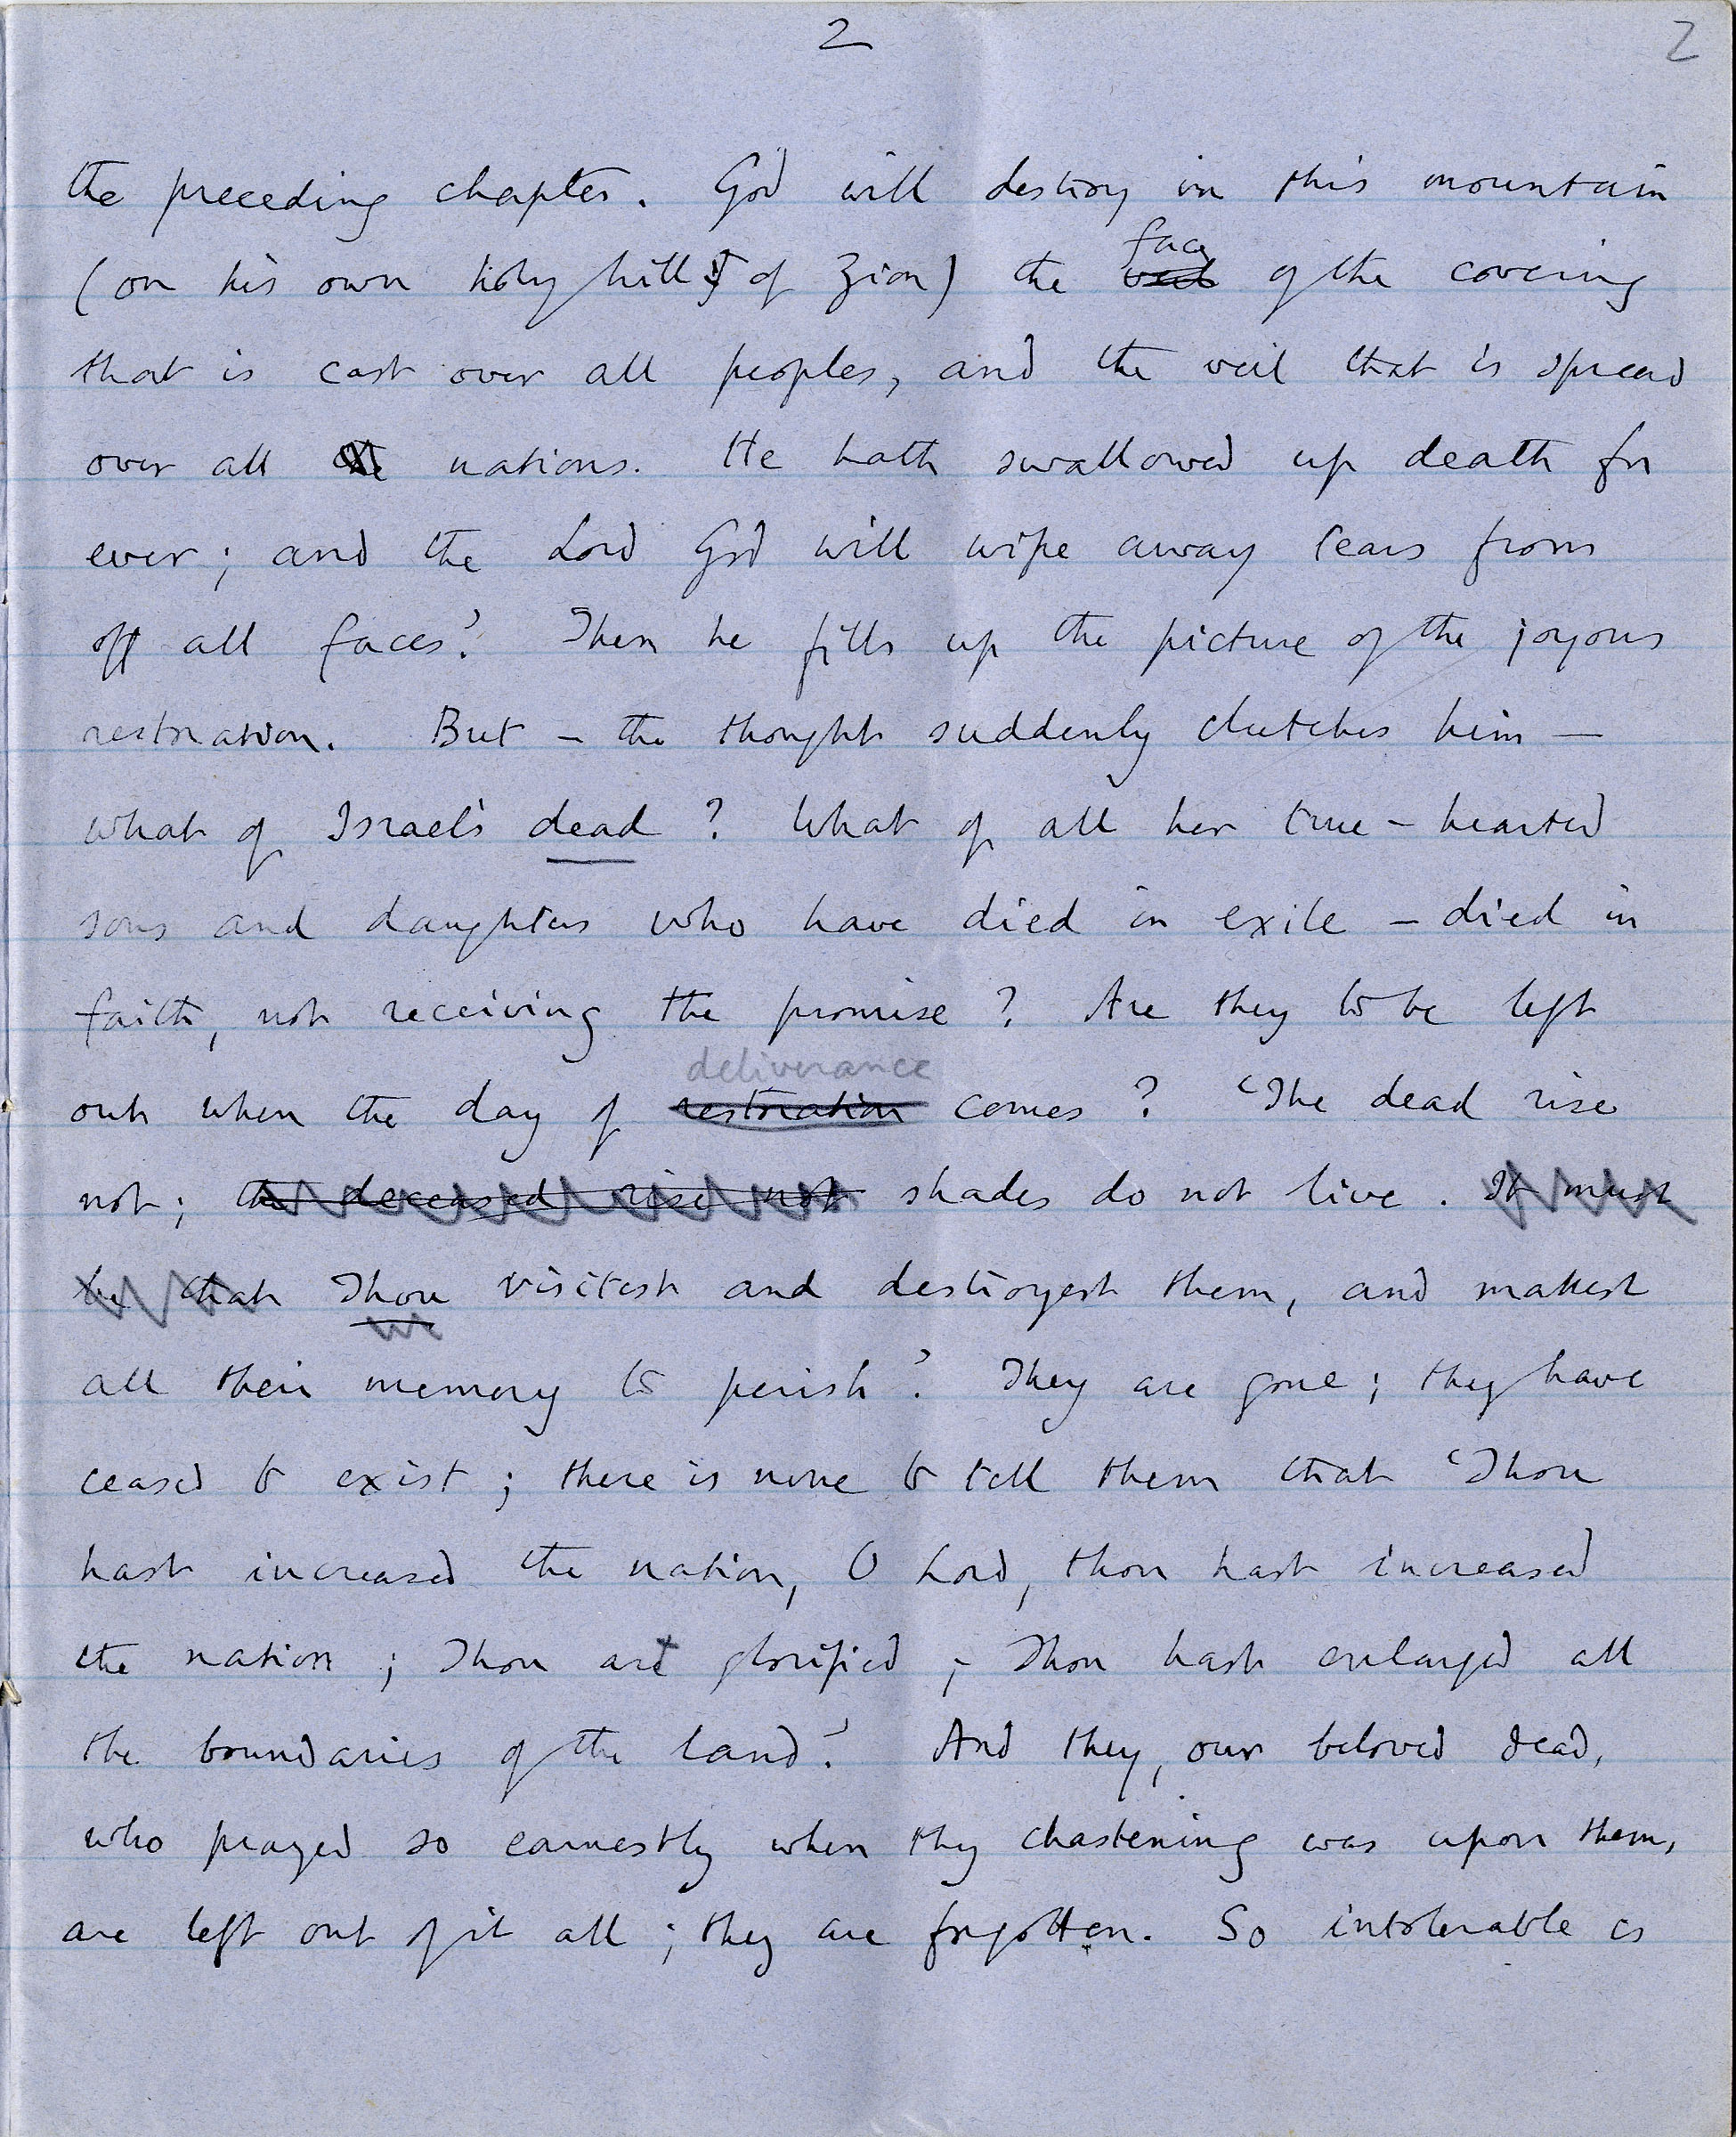 2 2
the preceding chapter. God will destroy in this mountain
(on his own holy hill of Zion) the face of the covering
that is cast over all peoples, and the veil that is spread
over all nations. He hath swallowed up death for
ever; and the Lord God will wipe away tears from
off all faces.' Then he fills up the picture of the joyous
restoration. But – the thought suddenly clutches him –
what of Israel's dead? What of all her true-hearted
sons and daughters who have died in exile – died in
faith, not receiving the promise? Are they to be left
deliverance
out when the day of restoration comes? 'The dead rise
not; the deceased rise not shades do not live. It must
be that Thou visitest and destroyest them, and makest
all their memory to perish'. They are gone; they have
ceased to exist; there is none to tell them that 'Thou
hast increased the nation, O Lord, thou hast increased
the nation; Thou art glorified; Thou hast enlarged all
the boundaries of the land.' And they, our beloved dead,
who prayed so earnestly when thy chastening was upon them,
are left out of it all; they are forgotten. So intolerable is